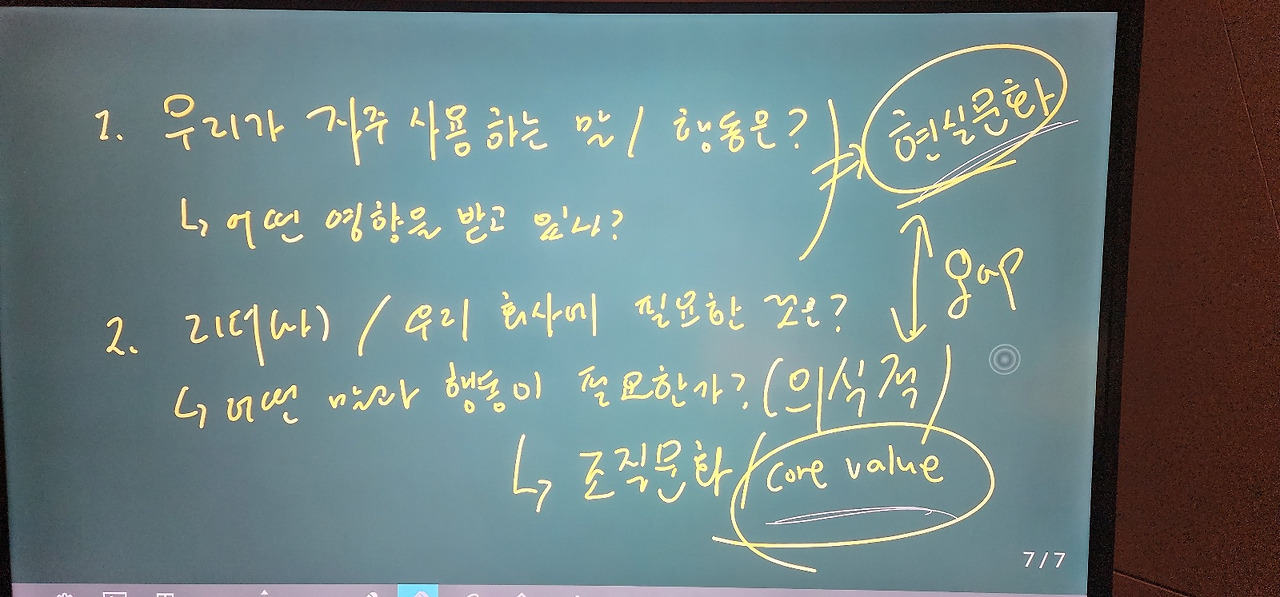 1. 우리가 자주 사용하는 말/ 행동은? ⇒ 현실문화
↳ 어떤 영향을 받고 있나?
gap
2. 리더(나) / 우리 회사에 필요한 것은?
↳ 어떤 말과 행동이 필요한가? (의식적)
↳ 조직문화/core value
7/7